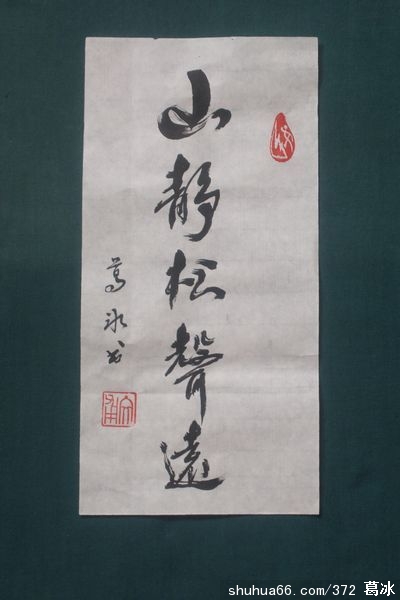 山靜松聲遠
葛冰书
shuhua66.com/372 葛冰